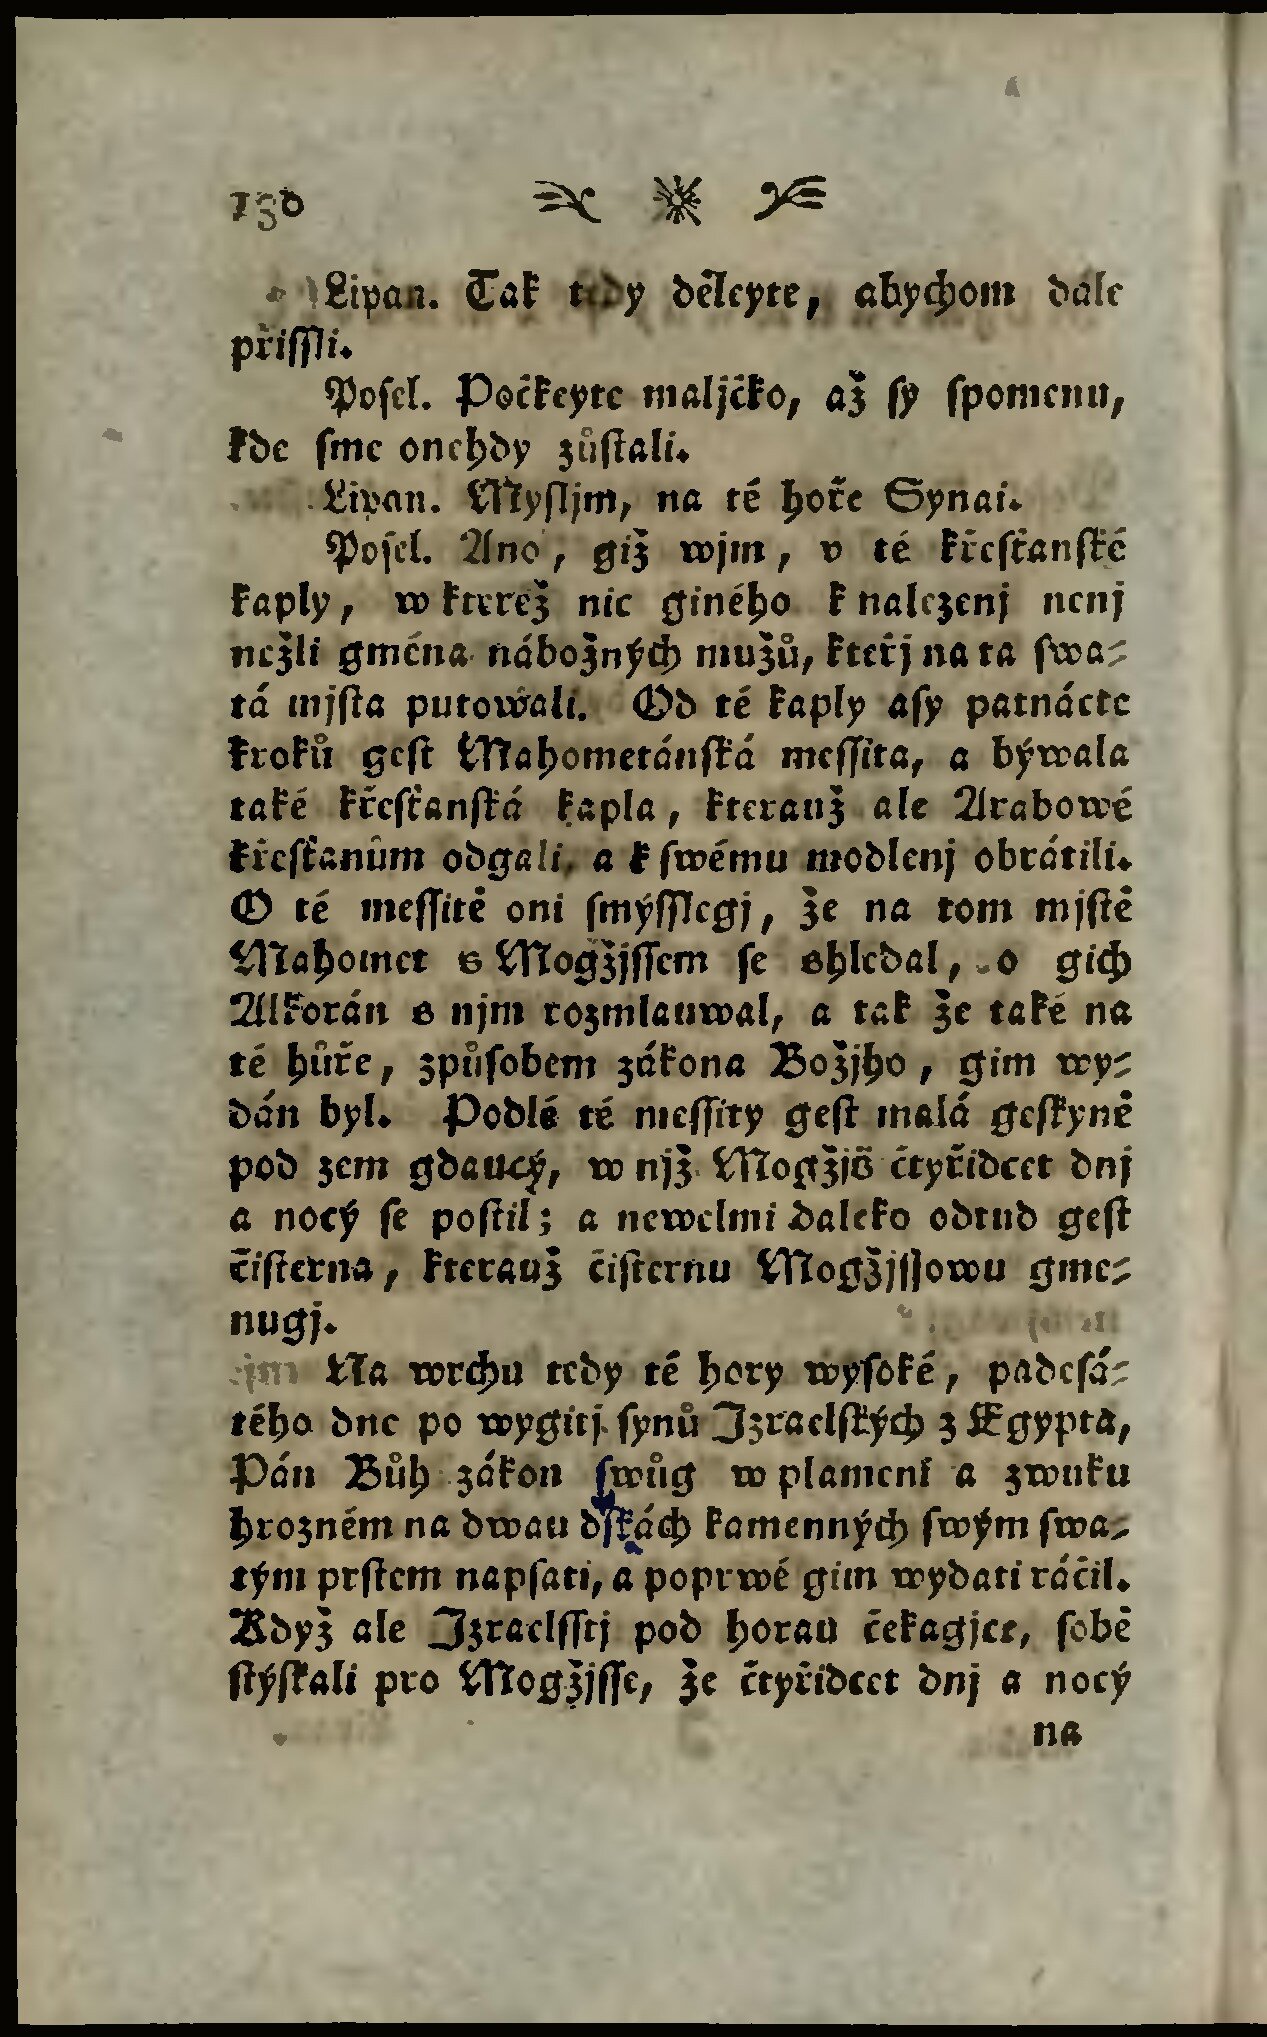 130
Lipan. Tak tedy děleyte, abychom dále
přissli.
Posel. Počkeyte maljčko, až sy spomenu,
kde sme onehdy zůstali.
Lipan. Mysljm, na té hoře Synai.
Posel. Ano, giž wjm, v té křesťanské
kaply, w kterež nic giného k nalezenj nenj
nežli gména nábožných mužů, kteřj na ta swa-
tá mjsta putowali. Od té kaply asy patnácte
kroků gest Mahometánská messita, a býwala
také křesťanská kapla, kterauž ale Arabowé
křesťanům odgali, a k swému modlenj obrátili.
O té messitě oni smýsslegj, že na tom mjstě
Mahomet s Mogžjssem se shledal, o gich
Alkorán s njm rozmlauwal, a tak že také na
té hůře, způsobem zákona Božjho, gim wy-
dán byl. Podlé té messity gest malá geskyně
pod zem gdaucý, w njž Mogžjš čtyřidcet dnj
a nocý se postil; a newelmi daleko odtud gest
čisterna, kterauž čisternu Mogžjssowu gme-
nugj.
Na wrchu tedy té hory wysoké, padesá-
tého dne po wygitj synů Izraelských z Egypta,
Pán Bůh zákon swůg w plameni a zwuku
hrozném na dwau dskách kamenných swým swa-
tým prstem napsati, a poprwé gim wydati ráčil.
Když ale Izraelsstj pod horau čekagjce, sobě
stýskali pro Mogžjsse, že čtyřidcet dnj a nocý
na